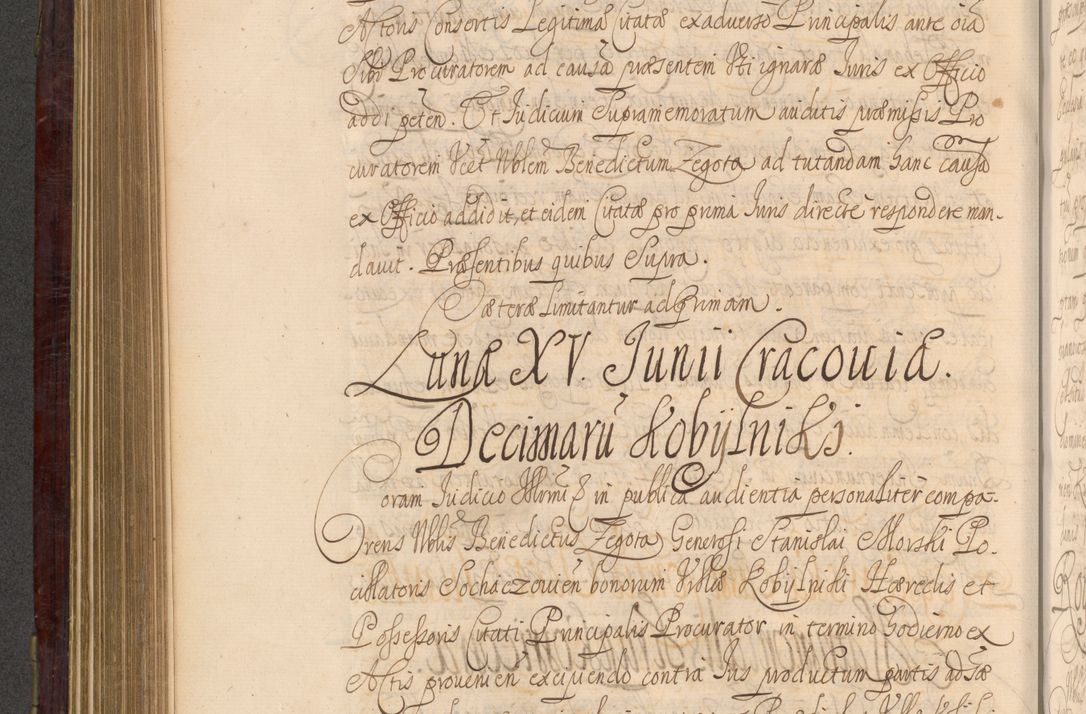 Actoris Consortis Legitimæ Citatæ exadverso Principalis ante oïa
Sibi Procuratorem ad causã præsentem Uti ignaræ Juris ex Officio
addi peten. Et Judicium Supramemoratum auditis præmissis Pro
curatorem Vcet Nblem Benedictum Zegota ad tutandam hanc causã
ex Officio addidit, et eidem Citatæ pro prima Juris directe respondere man-
davit. Præsentibus quibus Supra.
Cæteræ limitantur ad primam.
Lunæ XV. Junii Cracoviæ.
Decimarũ Kobylniki.
Coram Judicio in publica audientia personaliter compa-
rens Nblis Benedictus Zegota Generosi Stanislai Morski Po-
cillatoris Sochaczovien bonorum Villæ Kobylniki Hæredis et
Possessoris Citati Principalis Procurator in termino hodierno ex
Actis provenien excipiendo contra Jus productum partis adsæ